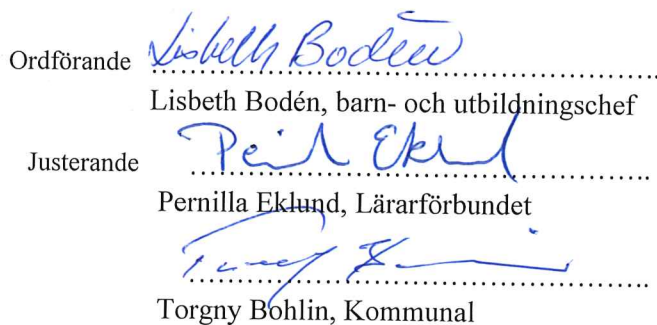 Ordförande Lisbeth Bodén
Lisbeth Bodén, barn- och utbildningschef
Justerande Pernilla Eklund
Pernilla Eklund, Lärarförbundet
Torgny Bohlin, Kommunal